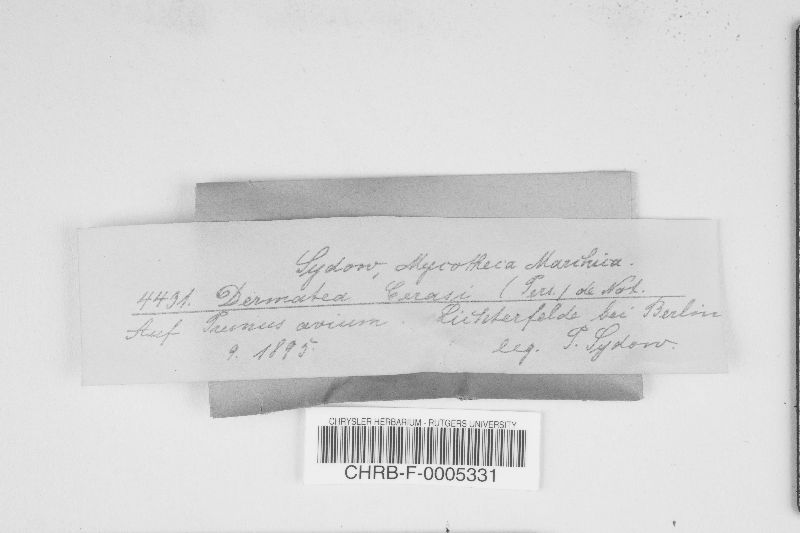 Sydow, Mycotheca Marchica.
4491. Dermatea Cerasi (Pers.) de Not.
Auf Prunus avium. Lichterfelde bei Berlin
9. 1895. leg. P. Sydow.
CHRYSLER HERBARIUM - RUTGERS UNIVERSITY
CHRB-F-0005331